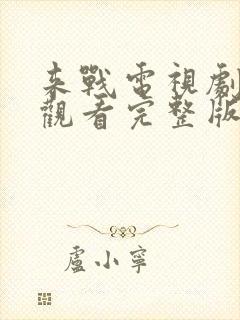 来戰電視劇
觀看完整版
盧小寧